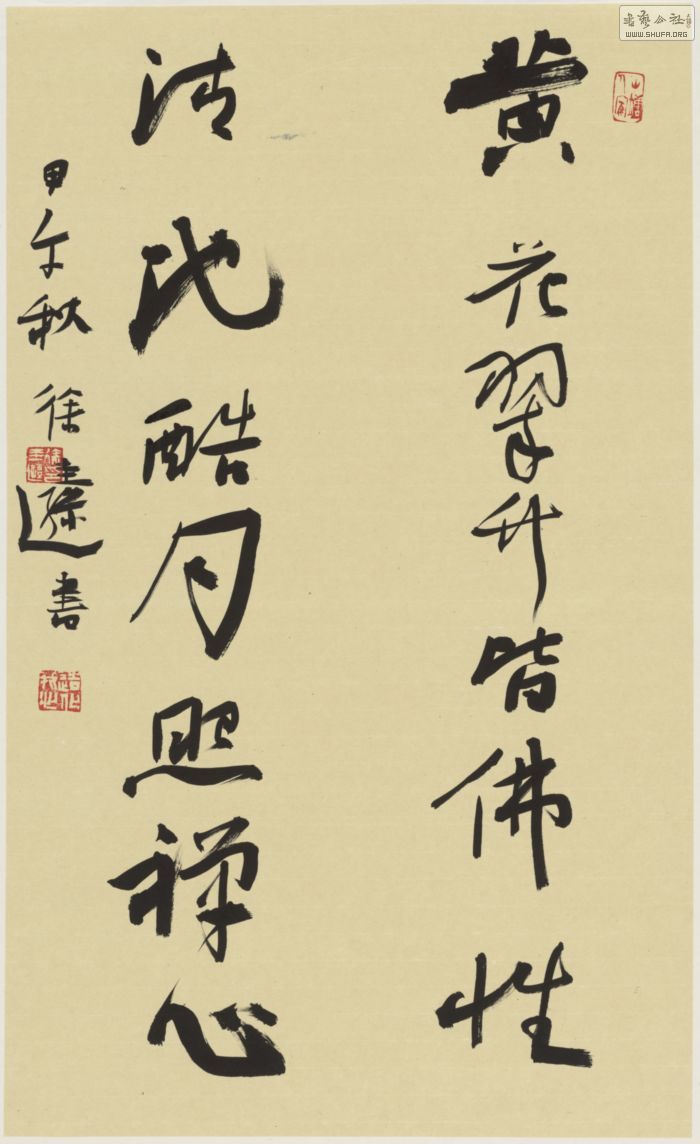 書藝公社
WWW.SHUFA.ORG
黄花翠竹皆佛性
清池酷月照禪心
甲午秋 徐 書